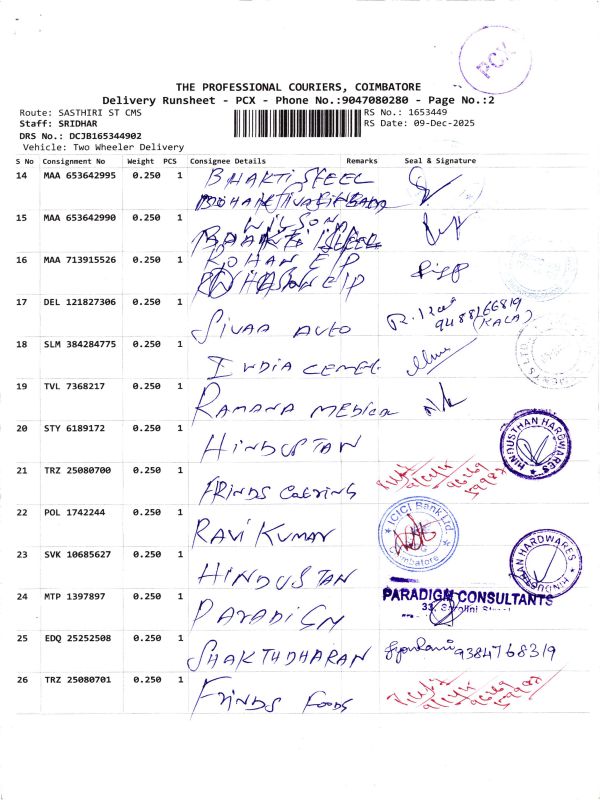 PCX
THE PROFESSIONAL COURIERS, COIMBATORE
Delivery Runsheet - PCX - Phone No.:9047080280 - Page No.:2
Route: SASTHIRI ST CMS
RS No.: 1653449
Staff: SRIDHAR
RS Date: 09-Dec-2025
DRS No.: DCJB165344902
Vehicle: Two Wheeler Delivery
S No Consignment No Weight PCS Consignee Details Remarks Seal & Signature
14 MAA 653642995 0.250 1 BHAKTI STEEL
15 MAA 653642990 0.250 1 WILSONA
16 MAA 713915526 0.250 1 ROHAN E/P
17 DEL 121827306 0.250 1 SIVAA AUTO 9488166819
(KALA)
18 SLM 384284775 0.250 1 INDIA CEMEL
19 TVL 7368217 0.250 1 RAMANA MEDICAL
20 STY 6189172 0.250 1 HINDUSTAN HINDUSTHAN HARDWARES
21 TRZ 25080700 0.250 1 FRINDS CATERING
22 POL 1742244 0.250 1 RAVI KUMAR ICICI Bank Ltd Coimbatore
23 SVK 10685627 0.250 1 HINDUSTAN HINDUSTHAN HARDWARES
24 MTP 1397897 0.250 1 PARADIGN PARADIGM CONSULTANTS
25 EDQ 25252508 0.250 1 SHAKTHIDHARAN 9384768319
26 TRZ 25080701 0.250 1 FRINDS FOODS